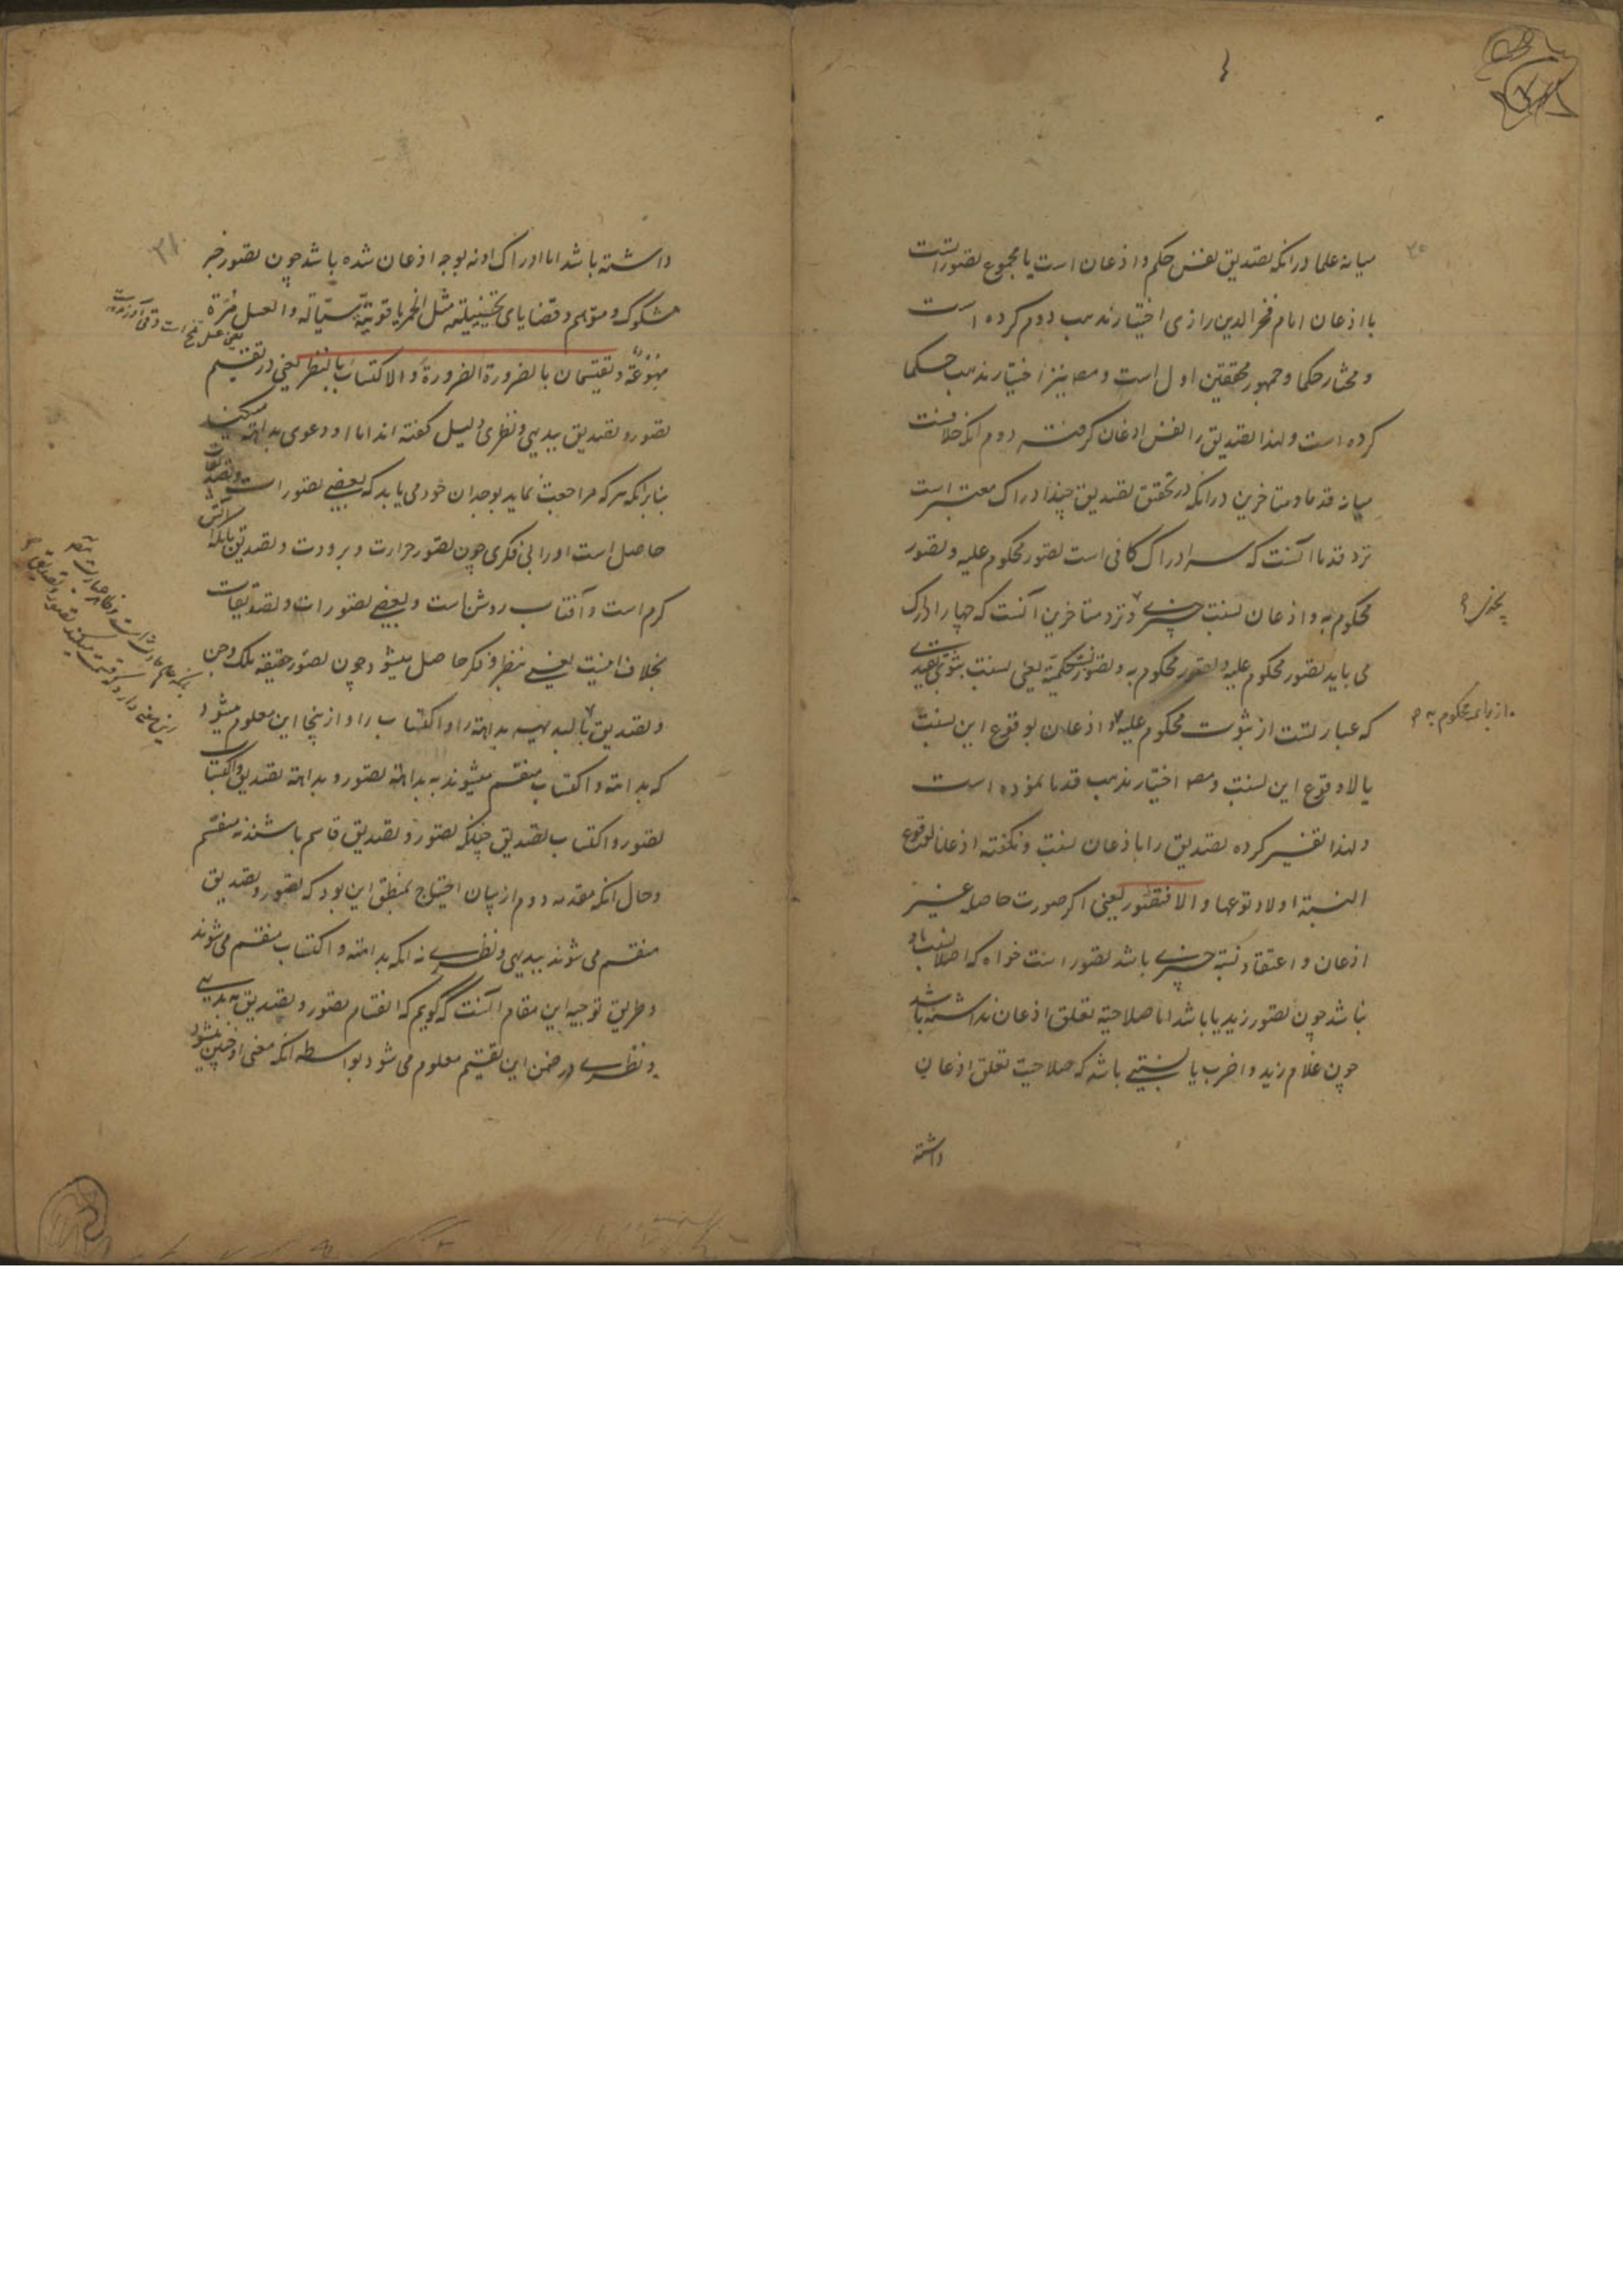 میانه علما در انکه تصدیق نفس حکم و اذعان است یا مجموع تصوراتست
با اذعان امام فخرالدین رازی اختیار مذهب دوم کرده است
و مختار حکما و جمهور محققین اول است و مصـ نیز اختیار مذهب حکما
کرده است و لهذا تصدیق را نفس اذعان کرفته دوم انکه خلافست
میانه قدما و متاخرین در انکه در تحقق تصدیق چند ادراک معتبر است
نزد قدما آنست که سه ادراک کافی است تصور محکوم علیه و تصور
محکوم به و اذعان نسبت خبری و نزد متاخرین آنست که چهار ادراک
می باید تصور محکوم علیه و تصور محکوم به و تصور نسبت حکمیة یعنی نسبت ثبوتی تقییدی
که عبارتست از ثبوت محکوم علیه و اذعان بوقوع این نسبت
یا لاوقوع این نسبت و مصـ اختیار مذهب قدما نموده است
و لهذا تفسیر کرده تصدیق را باذعان نسبت و نکفته اذعان لوقوع
النسبة او لاوقوعها و الا فتصور یعنی اکر صورت حاصله غیر
اذعان و اعتقاد نسبة خبری باشد تصور است خواه که اصلا نسبت
نباشد چون تصور زید یا باشد اما صلاحیة تعلق اذعان نداشته باشد
چون غلام زید و اضرب یا نسبتی باشد که صلاحیت تعلق اذعان
داشته
از برای محکوم به
داشته باشد اما ادراک او نه بوجه اذعان شده باشد چون تصور خبر
مشکوک و متوهم و قضایای تخییلیه مثل الخمر یاقوتیة سیّالة و العسل مُرّة
مهوّعة و تقتسمان بالضرورة الضرورة و الاکتساب بالنظر یعنی در تقسیم
تصور و تصدیق ببدیهی و نظری دلیل کفته اند اما او دعوی بداهة میکند
بنابر انکه هر که مراجعت نماید بوجدان خود می یابد که بعضی تصورات و تصدیقات
حاصل است او را بی فکری چون تصور حرارت و برودت و تصدیق بانکه آتش
کرم است و آفتاب روشن است و بعضی تصورات و تصدیقات
بخلاف اینست یعنی بنظر و فکر حاصل میشود چون تصور حقیقة ملک و جن
و تصدیق
که بداهة و اکتساب منقسم میشوند به بداهة تصور و بداهة تصدیق و اکتساب
تصور و اکتساب تصدیق چنانکه تصور و تصدیق قاسم باشند نه منقسم
و حال انکه مقدمه دوم از بیان احتیاج بمنطق این بود که تصور و تصدیق
منقسم می شوند ببدیهی و نظری نه انکه بداهة و اکتساب منقسم می شوند
و طریق توجیه این مقام آنست که کویم که انقسام تصور و تصدیق به بدیهی
و نظری در ضمن این تقسیم معلوم می شود بواسطه انکه معنی او چنین میشود